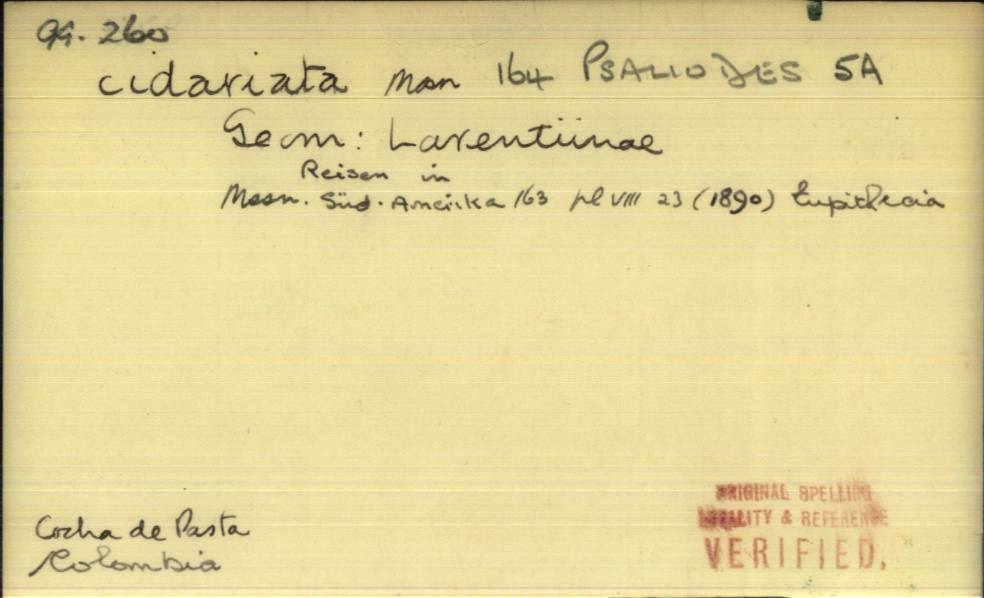 GG. 260
cidariata Mssn 164 PSALIODES 5A
Geom: Larentiinae
Reisen in
Mssn. Süd. Amerika 163 pl VIII 23 (1890) Eupithecia
Cocha de Pasta
Colombia
ORIGINAL SPELLING
LOCALITY & REFERENCE
VERIFIED.